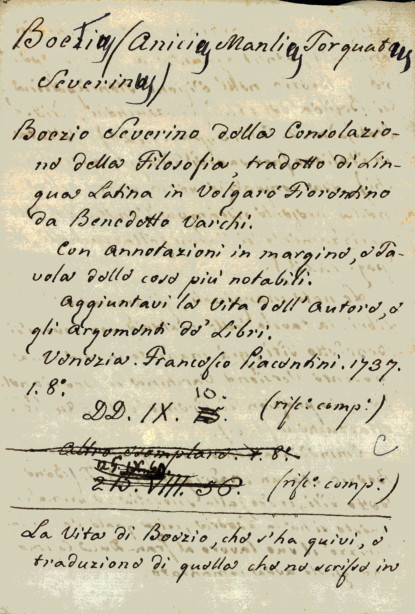 Boezius (Anicius Manlius Torquatus
Severinus)
Boezio Severino della Consolazio-
ne della Filosofia, tradotto di Lin-
gua Latina in Volgare Fiorentino
da Benedetto Varchi.
Con Annotazioni in margine, e Ta-
vola delle cose più notabili.
Aggiuntavi la Vita dell'Autore, e
gli Argomenti de' Libri.
Venezia. Francesco Piacentini. 1737.
1. 8.°
10.
DD. IX. (risc: comp:)
Altro esemplare. 1. 8.° C
2 B. VIII. 36. (risc: comp:)
La Vita di Boezio, che s'ha quivi, è
traduzione di quella che ne scrisse in